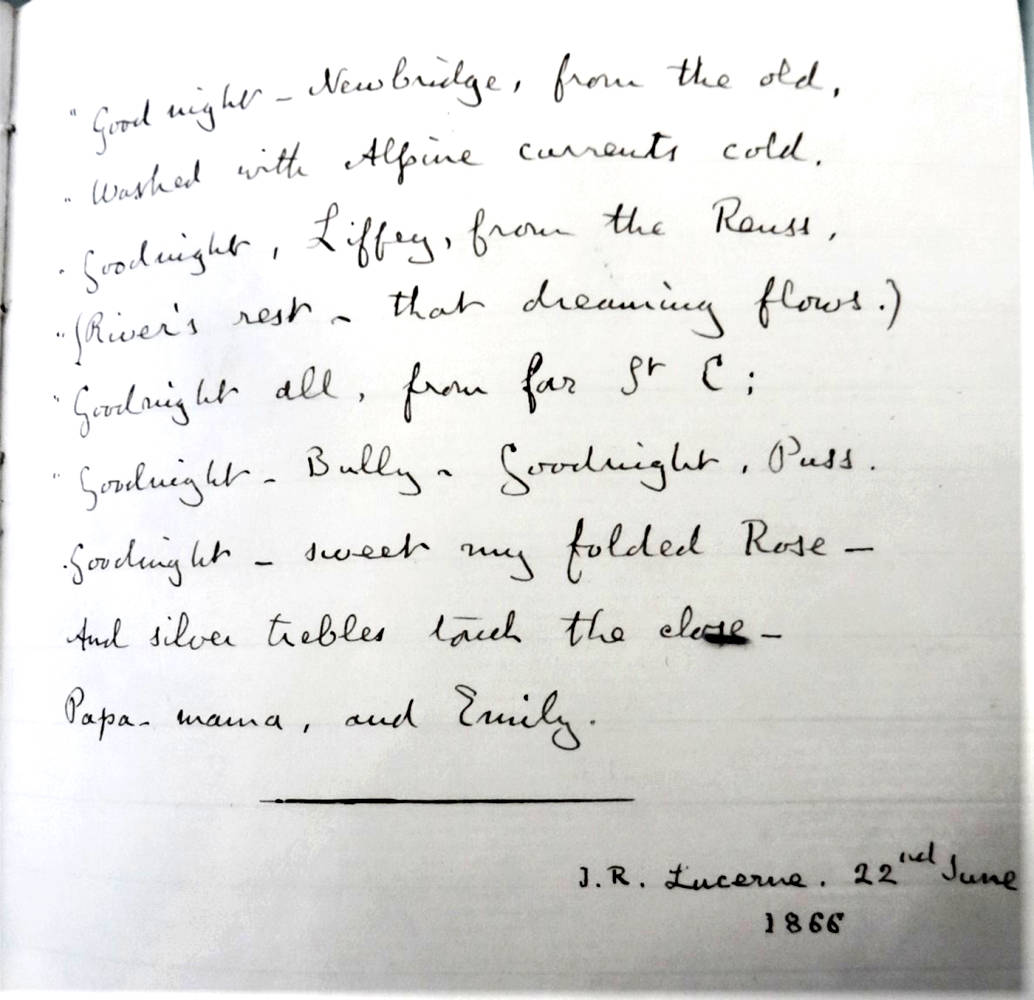 "Good night – Newbridge, from the old,
"Washed with Alpine currents cold.
"Goodnight, Liffey, from the Reuss,
"(River's rest – that dreaming flows.)
"Goodnight all, from far St C;
"Goodnight – Bully – Goodnight, Puss.
"Goodnight – sweet my folded Rose –
And silver trebles touch the close –
Papa – mama, and Emily.
J.R. Lucerne. 22nd June
1866